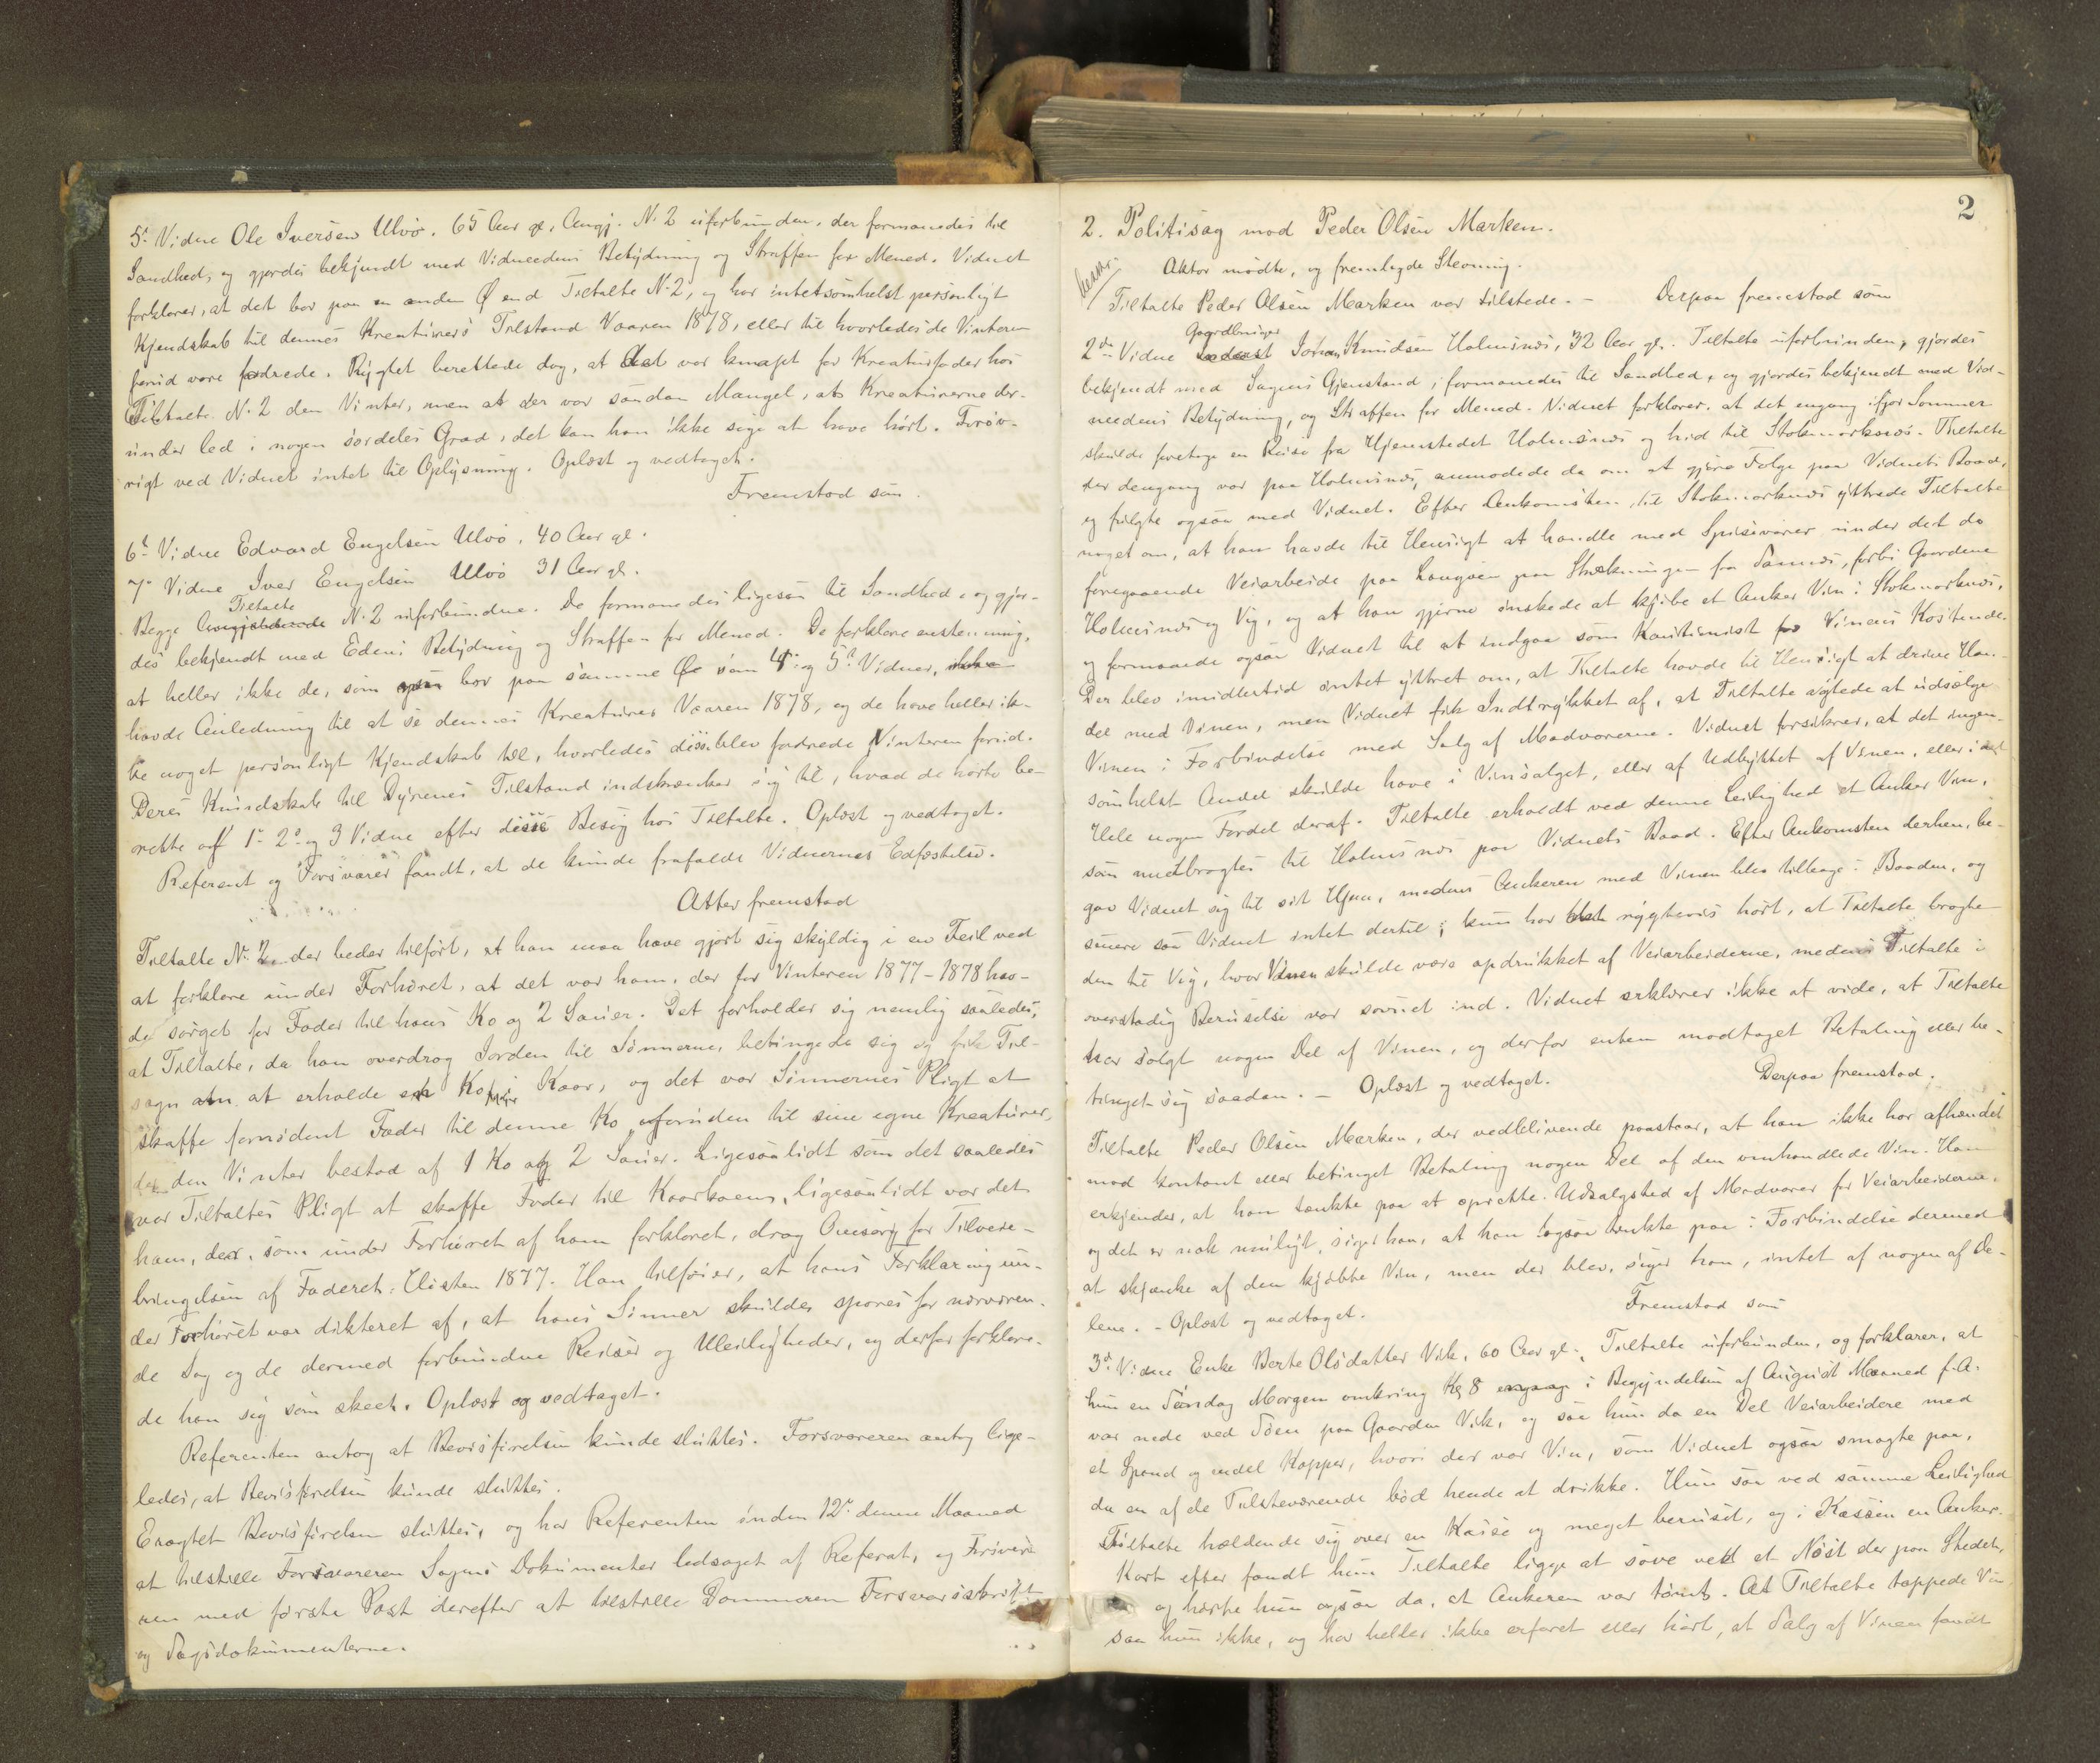 5t Vidne Ole Iversen Ulvö. 65 Aar gl, Angj. N. 2 uforbunden, der formanedes til
Sandhed, og gjordes bekjendt med Vidneedens Betydning og Straffen for Mened. Vidnet
forklarer, at det bor paa en anden Ø end Tiltalte N. 2, og har intetsomhelst personligt
Kjendskab til dennes Kreaturers Tilstand Vaaren 1878, eller til hvorledes de Vinteren
forud vare fodrede. Rygtet berettede dog, at det var knapt for Kreaturfoder hos
Tiltalte N. 2 den Vinter, men at der var saadan Mangel, at Kreaturerne der-
under led i nogen særdeles Grad, det kan han ikke sige at have hört. Forøv-
rigt ved Vidnet intet til Oplysning. Oplæst og vedtaget.
Fremstod som
6t Vidne Edvard Engelsen Ulvö, 40 Aar gl.
7de Vidne Iver Engelsen Ulvö 31 Aar gl.
Tiltalte
Begge Angjældende N. 2 uforbundne. De formanedes ligesaa til Sandhed, og gjor-
des bekjendt med Edens Betydning og Straffen for Mened. De forklare enstemmig,
at heller ikke de, som bor paa samme Ø som 4de og 5te Vidner, ikke
havde Anledning til at se dennes Kreaturer Vaaren 1878, og de have heller ik-
ke noget personligt Kjendskab til, hvorledes disse blev fodrede Vinteren forud.
Deres Kundskab til Dyrenes Tilstand indskrænker sig til, hvad de hörte be-
rette af 1ste 2de og 3 Vidne efter disses Besög hos Tiltalte. Oplæst og vedtaget.
Referent og Forsvarer fandt, at de kunde frafalde Vidnernes Edfæstelse.
Atter fremstod
Tiltalte N. 2 der beder tilført, at han maa have gjort sig skyldig i en Feil ved
at forklare under Forhöret, at det var ham, der for Vinteren 1877-1878 hav-
de sörget for Foder til hans Ko og 2 Sauer. Det forholder sig nemlig saaledes,
at Tiltalte, da han overdrog Jorden til Sönnerne, betingede sig og fik Til-
sagn om at erholde en Ko i Kaar, og det var Sönnernes Pligt at
skaffe fornödent Foder til denne Ko foruden til sine egne Kreaturer,
der den Vinter bestod af 1 Ko og 2 Sauer. Ligesaalidt som det saaledes
var Tiltaltes Pligt at skaffe Foder til Kaarkoen, ligesaalidt var det
ham, der, som under Forhöret af ham forklaret, drog Omsorg for Tilveie-
bringelsen af Foderet Hösten 1877. Han tilföier, at hans Forklaring un-
der Forhöret var dikteret af, at hans Sönner skulde spares for nærværen-
de Sag og de dermed forbundne Reiser og Uleiligheder, og derfor forklare-
de han sig som skeet. Oplæst og vedtaget.
Referenten antog at Bevisförelsen kunde sluttes. Forsvareren antog lige-
ledes, at Bevisförelsen kunde sluttes.
Eragtet Bevisförelsen sluttes, og har Referenten inden 12te denne Maaned
at tilstille Forsvareren Sagens Dokumenter ledsaget af Referat, og Forsvare-
ren med förste Post derefter at tilstille Dommeren Forsvarsskrift
og Sagsdokumenterne.
2
2. Politisag mod Peder Olsen Marken.
Aktor mödte, og fremlagde Stevning.
Tiltalte Peder Olsen Marken var tilstede. – Derpaa fremstod som
Gaardbruger
2de Vidne Johan Knudsen Holmsnes, 32 Aar gl. Tiltalte uforbunden, gjordes
bekjendt med Sagens Gjenstand, formanedes til Sandhed, og gjordes bekjendt med Vid-
needens Betydning, og Straffen for Mened. Vidnet forklarer, at det engang ifjor Sommer
skulde foretage en Reise fra Hjemstedet Holmsnes og hid til Stokmarknes. Tiltalte
der dengang var paa Holmsnes, anmodede da om at gjöre Fölge paa Vidnets Baad,
og fulgte ogsaa med Vidnet. Efter Ankomsten til Stokmarknes yttrede Tiltalte
noget om, at han havde til Hensigt at handle med Spisevarer under det da
foregaaende Veiarbeide paa Langöen paa Strækningen fra Sannes, forbi Gaardene
Holmsnes og Vig, og at han gjerne önskede at kjöbe et Anker Vin i Stokmarknes,
og formaaede ogsaa Vidnet til at indgaa som Kautionist for Vinens Kostende.
Der blev imidlertid intet yttret om, at Tiltalte havde til Hensigt at drive Han-
del med Vinen, men Vidnet fik Indtrykket af, at Tiltalte agtede at udsælge
Vinen i Forbindelse med Salg af Madvarerne. Vidnet forsikrer, at det ingen-
somhelst Andel skulde have i Vinsalget, eller af Udbyttet af Vinen, eller i det
Hele nogen Fordel deraf. Tiltalte erholdt ved denne Leilighed et Anker Vin,
som medbragtes til Holmsnes paa Vidnets Baad. Efter Ankomsten derhen, be-
gav Vidnet sig til sit Hjem, medens Ankeren med Vinen blev tilbage i Baaden, og
senere saa Vidnet intet dertil; kun har det rygtevis hört, at Tiltalte bragte
den til Vig, hvor Vinen skulde være opdrukket af Veiarbeiderne, medens Tiltalte i
overstadig Beruselse var sovnet ind. Vidnet erklærer ikke at vide, at Tiltalte
har solgt nogen Del af Vinen, og derfor enten modtaget Betaling eller be-
tinget sig saadan. – Oplæst og vedtaget. Derpaa fremstod
Tiltalte Peder Olsen Marken, der vedblivende paastaar, at han ikke har afhændet
mod kontant eller betinget Betaling nogen Del af den omhandlede Vin. Han
erkjender, at han tænkte paa at oprette Udsalgsted af Madvarer for Veiarbeiderne,
og det er nok muligt, siger han, at han ogsaa tænkte paa i Forbindelse dermed
at skjænke af den kjöbte Vin, men der blev, siger han, intet af nogen af De-
lene. – Oplæst og vedtaget. Fremstod som
3de Vidne Enke Berte Olsdatter Vik, 60 Aar gl., Tiltalte uforbunden, og forklarer, at
hun en Söndag Morgen omkring Kl 8 engang i Begyndelsen af August Maaned f.A.
var nede ved Söen paa Gaarden Vik, og saa hun da en Del Veiarbeidere med
et Spand og endel Kopper, hvori der var Vin, som Vidnet ogsaa smagte paa,
da en af de Tilstedeværende böd hende at drikke. Hun saa ved samme Leilighed
Tiltalte hældende sig over en Kasse og meget beruset, og i Kassen en Anker.
Kort efter fandt hun Tiltalte ligge at sove ved et Nöst der paa Stedet,
og hörte hun ogsaa da, at Ankeren var tömt. At Tiltalte tappede Vin
saa hun ikke, og har heller ikke erfaret eller hört, at Salg af Vinen fandt